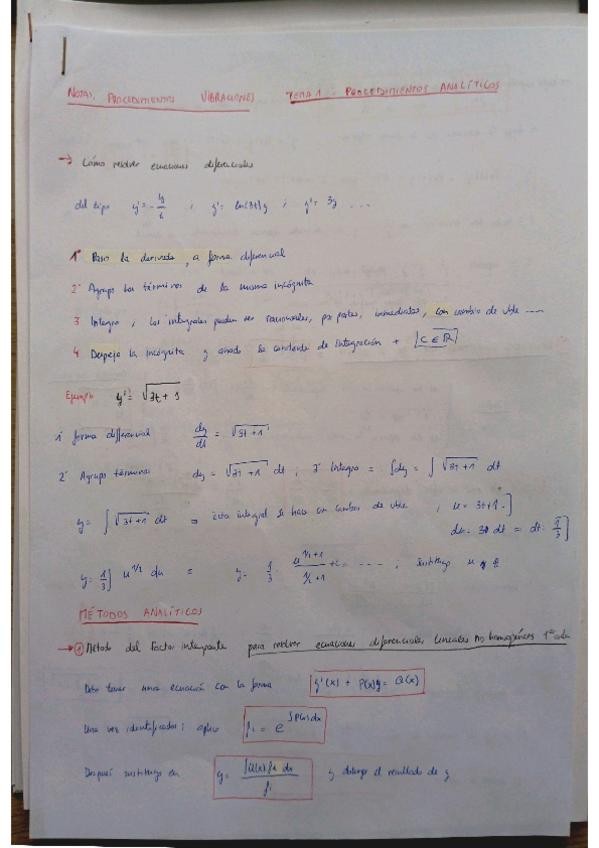 NOTAS, PROCEDIMIENTOS VIBRACIONES TEMA 1: PROCEDIMIENTOS ANALÍTICOS
→ Cómo resolver ecuaciones diferenciales
del tipo y' = - y/t ; y' = ln(3t)y ; y' = 3y ...
1º Paso la derivada, a forma diferencial
2º Agrupo los términos de la misma incógnita
3 Integro, las integrales pueden ser racionales, por partes, inmediatas, con cambio de vble ...
4 Despejo la incógnita y añado la constante de integración + |C ∈ ℝ|
Ejemplo y' = √3t + 1
1º forma differencial dy/dt = √3t + 1
2º Agrupo términos dy = √3t + 1 dt ; 3º Integro = ∫dy = ∫ √3t + 1 dt
y = ∫ √3t + 1 dt ⇒ esta integral se hace con cambio de vble ; u = 3t + 1
du = 3 dt = dt = 1/3
y = 1/3 ∫ u^1/2 du = y = 1/3 · u^(1/2 + 1)/(1/2 + 1) + c = ... ; sustituyo u
MÉTODOS ANALÍTICOS
→ ① Método del factor integrante para resolver ecuaciones diferenciales lineales no homogéneas 1º orden
Debo tener una ecuación con la forma y'(x) + P(x)y = Q(x)
Una vez identificados; aplico fi = e^∫P(x)dx
Después sustituyo en y = ∫Q(x) fi dx / fi y obtengo el resultado de y